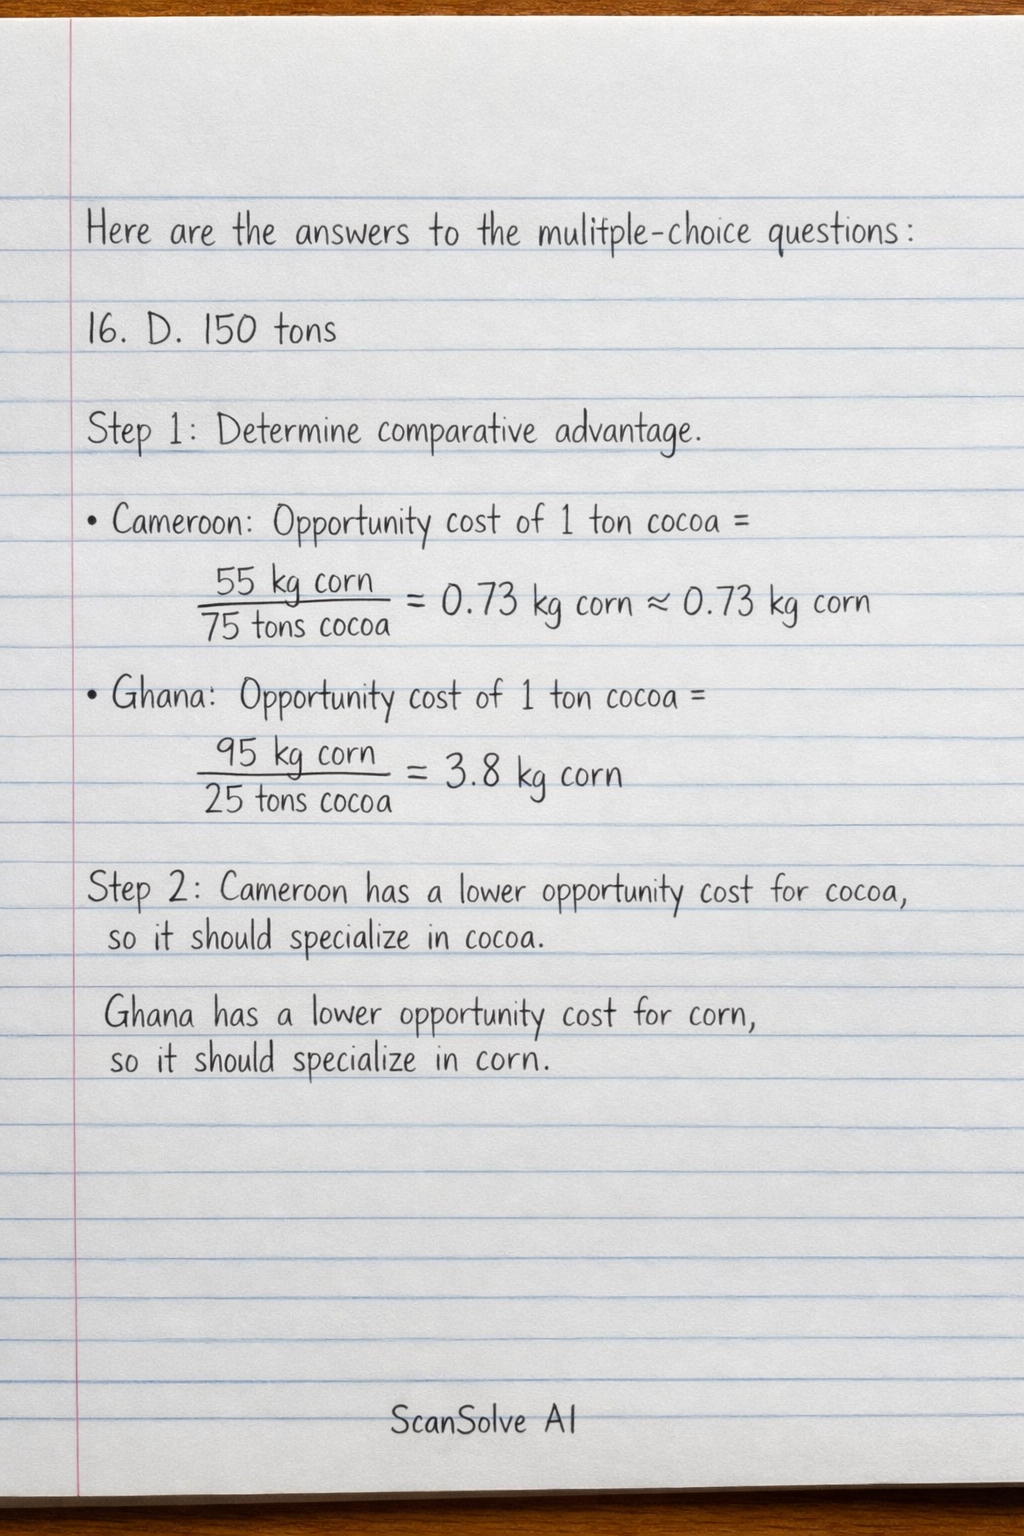 Here are the answers to the mulitple-choice questions:
16. D. 150 tons
Step 1: Determine comparative advantage.
• Cameroon: Opportunity cost of 1 ton cocoa =
55 kg corn
75 tons cocoa
= 0.73 kg corn ≈ 0.73 kg corn
• Ghana: Opportunity cost of 1 ton cocoa =
95 kg corn
25 tons cocoa
= 3.8 kg corn
Step 2: Cameroon has a lower opportunity cost for cocoa,
so it should specialize in cocoa.
Ghana has a lower opportunity cost for corn,
so it should specialize in corn.
ScanSolve AI